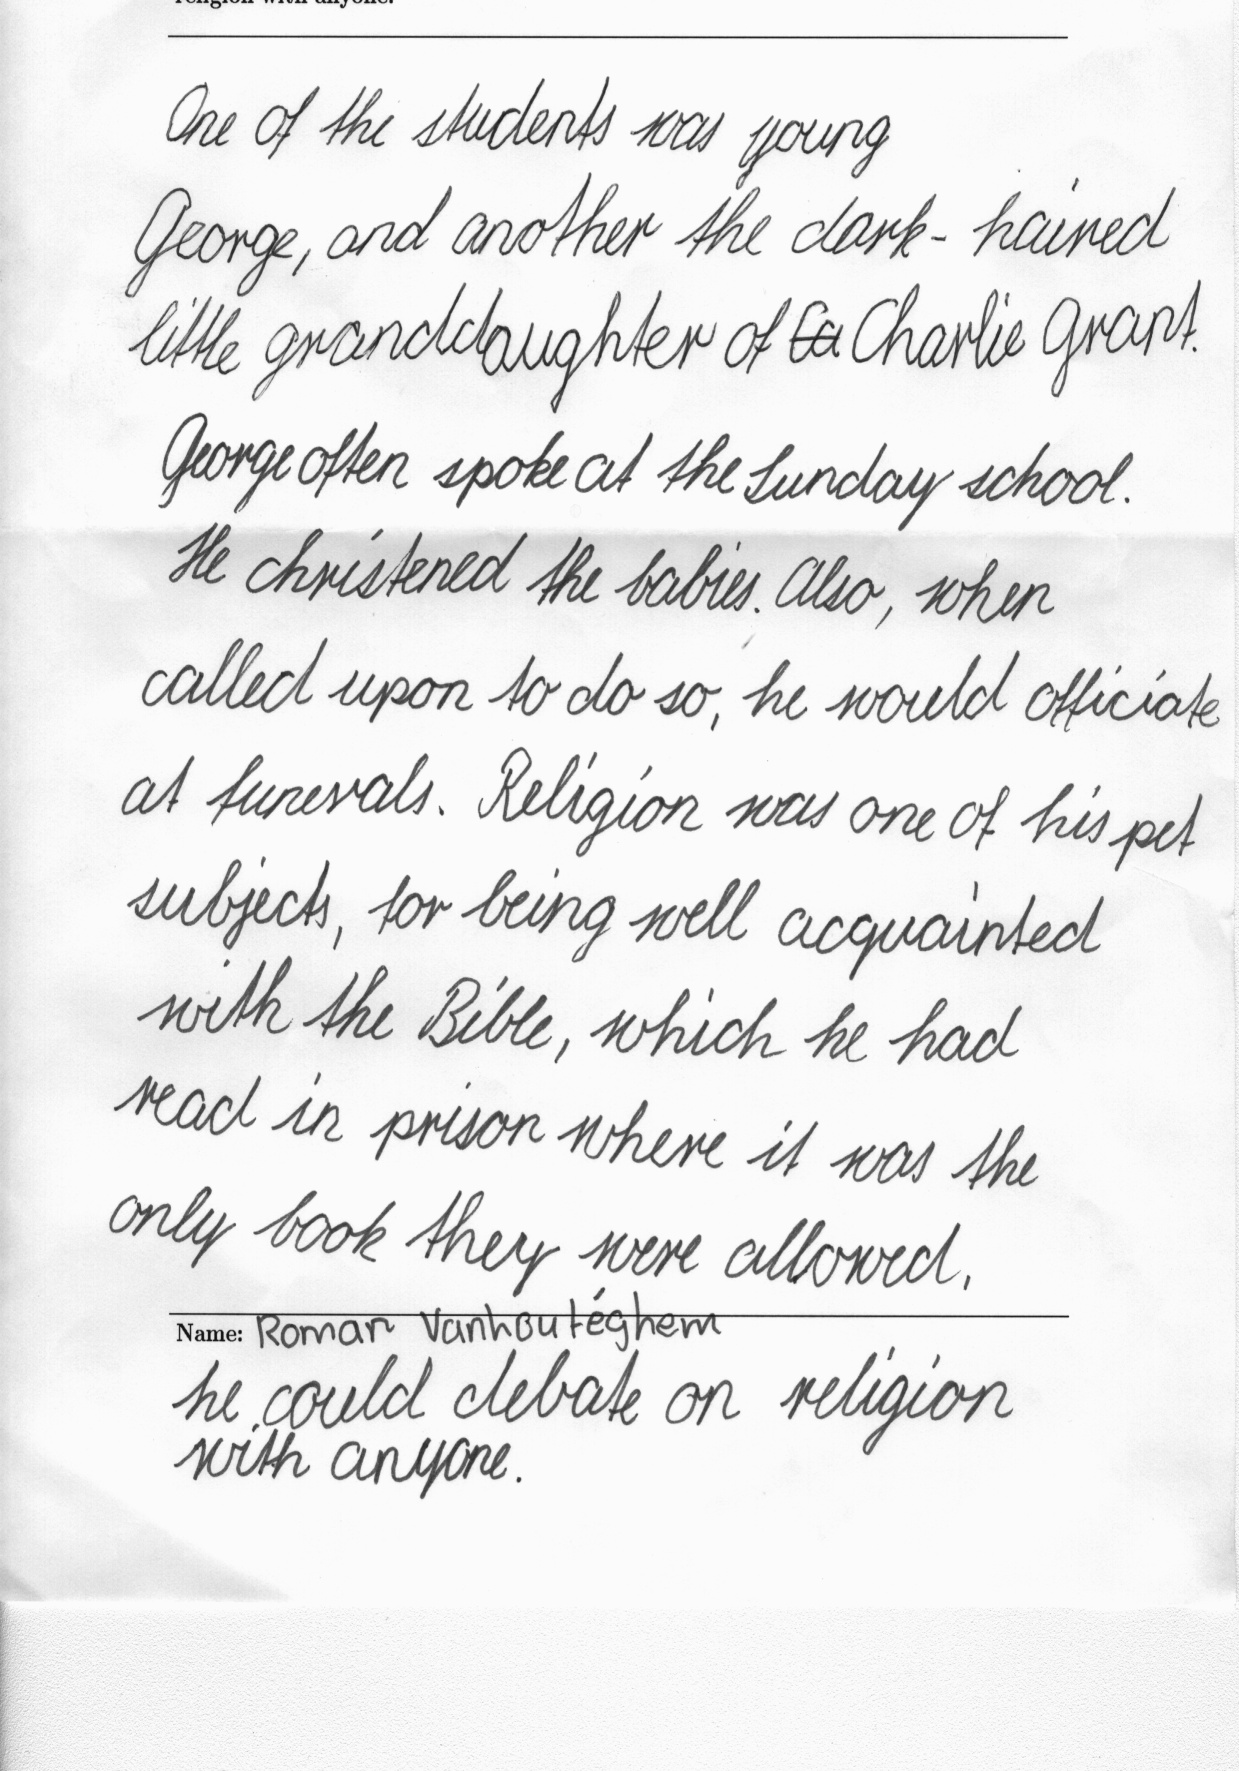 religion with anyone.
One of the students was young
George, and another the dark-haired
little granddaughter of Charlie Grant.
George often spoke at the Sunday school.
He christened the babies. Also, when
called upon to do so, he would officiate
at funerals. Religion was one of his pet
subjects, for being well acquainted
with the Bible, which he had
read in prison where it was the
only book they were allowed,
Name: Roman Vanhoutéghem
he could debate on religion
with anyone.